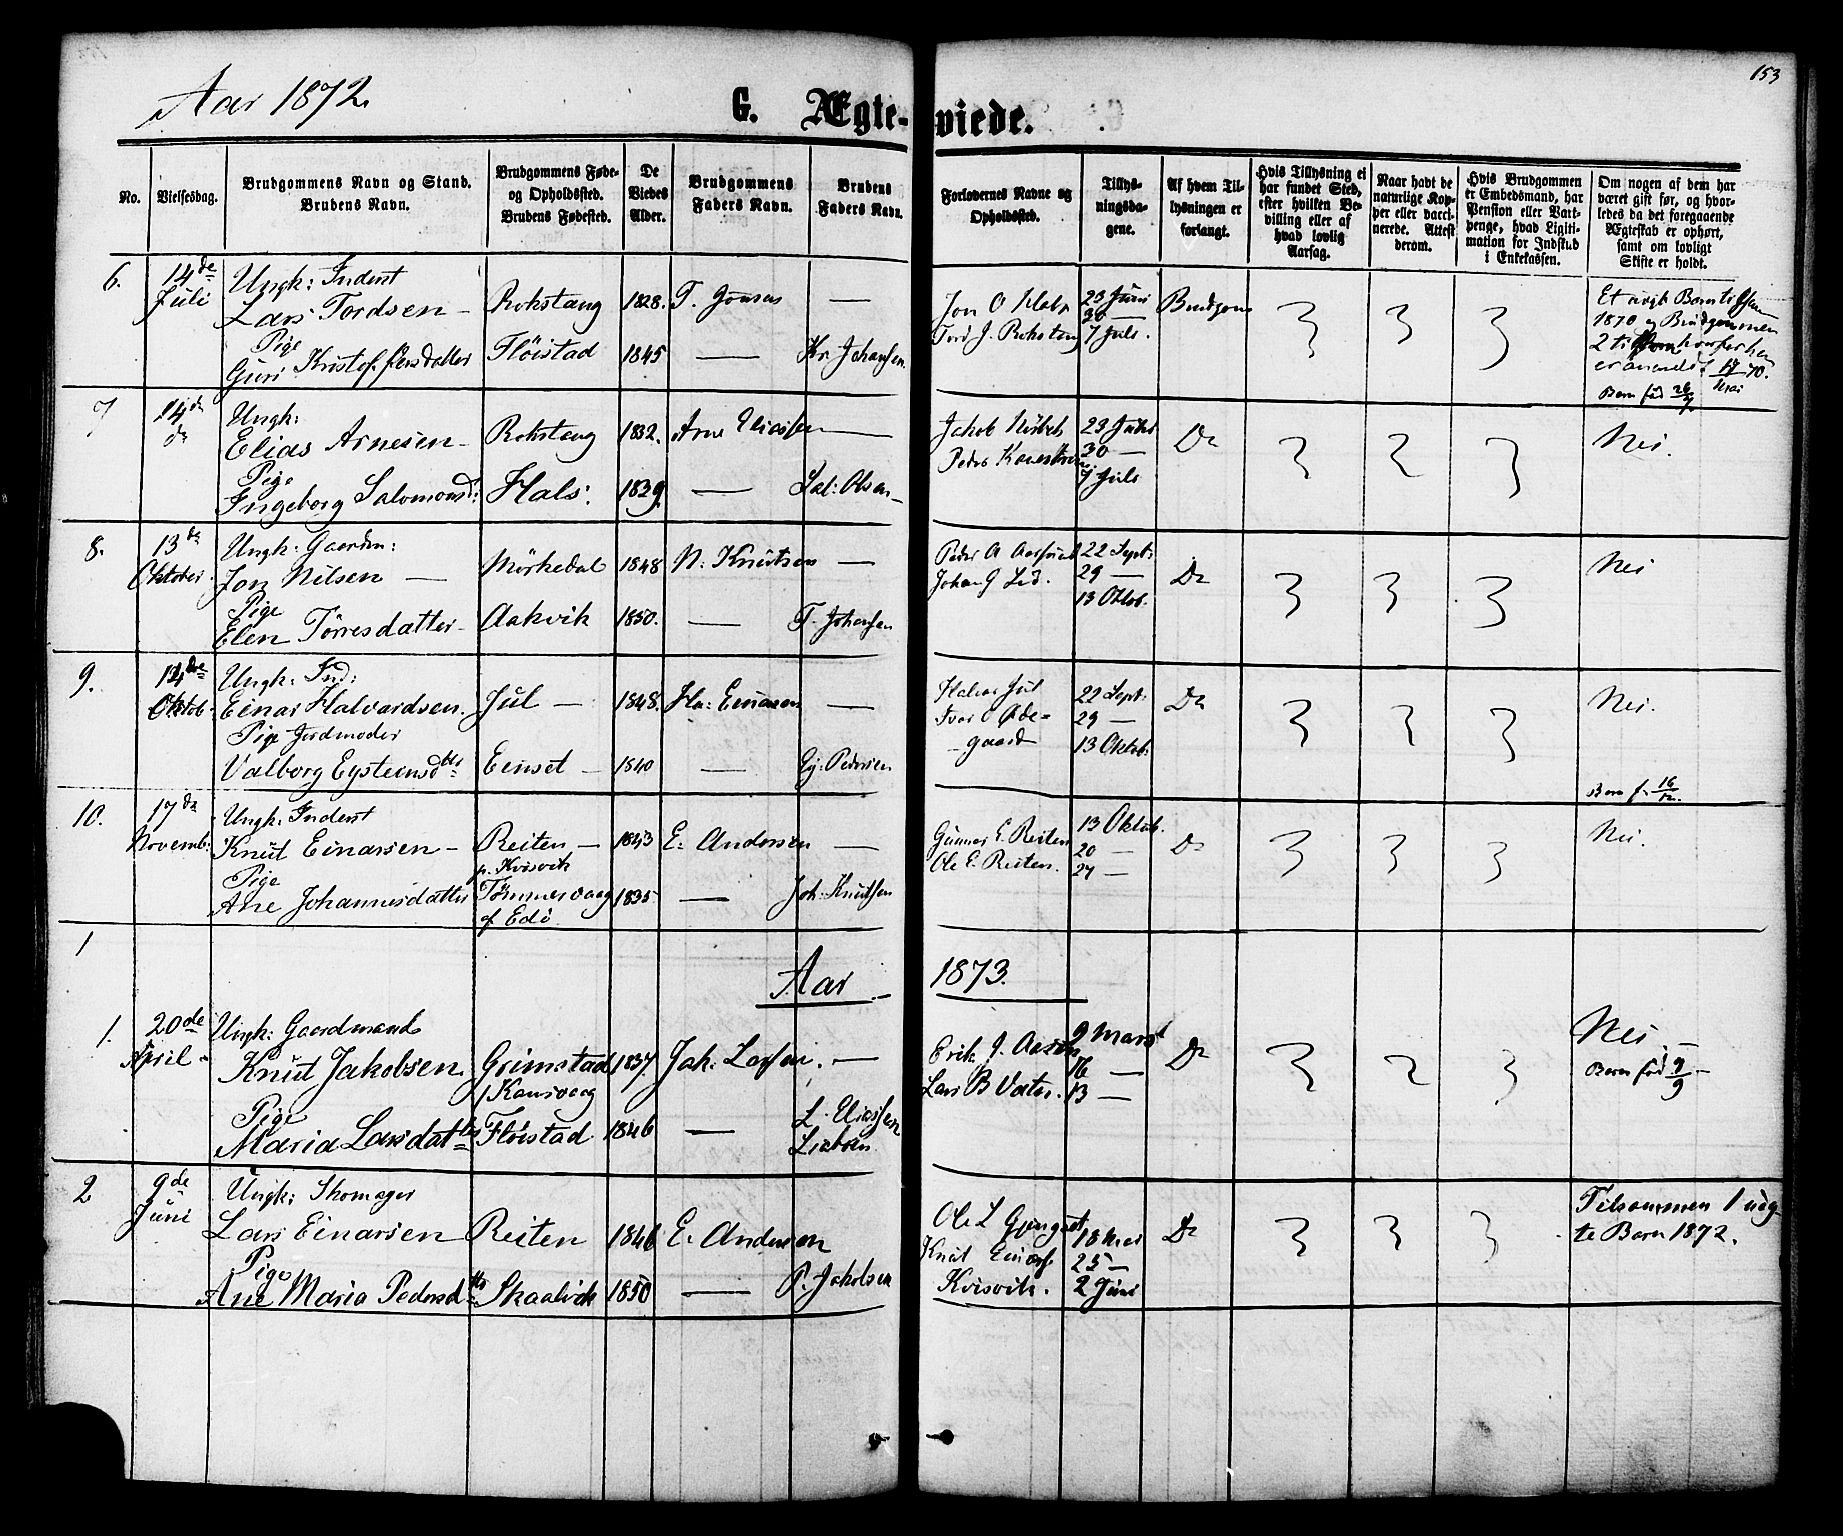 153
Aar 1872
G. Ægteviede.
No.
Vielsesdag.
Brudgommens Navn og Stand.
Brudens Navn.
Brudgommens Føde-
og Opholdssted.
Brudens Fødested.
De
Viedes
Alder.
Brudgommens
Faders Navn.
Brudens
Faders Navn.
Forlovernes Navne og
Opholdssted.
Tillys-
ningsda-
gene.
Af hvem Til-
lysningen er
forlangt.
Hvis Tillysning ei
har fundet Sted,
efter hvilken Be-
villing eller af
hvad lovlig
Aarsag.
Naar havt de
naturlige Kop-
per eller vacci-
nerede. Attest
derom.
Hvis Brudgommen
er Embedsmand, har
Pension eller Vart-
penge, hvad Ligiti-
mation for Indskud
i Enkekassen.
Om nogen af dem har
været gift før, og hvor-
ledes da det foregaaende
Ægteskab er ophørt,
samt om lovligt
Skifte er holdt.
6.
14de
Juli
Ungk: Inderst
Lars Tordsen —
Pige
Guri Kristoffersdatter
Rokstang
Fløistad
1828.
1845
T. Jonsen
—
—
Kr Johansen.
Jon O Hals
Tord J. Rokstang
23 Juni
30 —
7 Juli.
Brudgom
3 3 3
Et uægt Barn tilsam
1870 og Brudgommen
2 til
Barn fød
7
14de
Ungk:
Elias Arnesen —
Pige
Ingeborg Salomonsd:
Rokstang
Hals.
1832.
1839.
Arne Eliassen
—
—
Sal: Olsen —
Jakob
Peder
23 Juni
30 —
7 Juli
Do
3 2 3
Nei.
8.
13de
Oktober.
Ungk: Gaardm:
Jon Nilsen —
Pige
Elen Tørresdatter —
Mørkedal
Aakvik
1848
1850.
N: Knutsen
—
—
T. Johansen
Peder A
Johan J Lid.
22 Sept:
29 —
13 Oktob.
Do
3 3 3
Nei
9.
14de
Oktob.
Ungk: Ind:
Einar Halvardsen.
Pige Jordmoder
Valborg Eysteinsdtr
Jul —
Einset —
1848.
1840
Ha: Einarsen
—
—
Ey: Pedersen
Halvar Jul
Ivar O Øde-
— gaard
22 Sept:
29 —
13 Oktob:
Do
3 3 3
Nei.
Barn f. 16/12.
10.
17de
Novemb:
Ungk: Inderst
Knut Einarsen —
Pige
Ane Johannesdatter
Reiten —
p. Kvisvik
Tømmervaag
af Edø
1843
1835
E: Andersen
—
—
Joh: Knutsen
Gunnar E. Reiten
Ole E. Reiten.
13 Oktob.
20 —
27 —
Do
3 3 3
Nei.
1
Aar 1873.
1.
20de
April
Ungk: Gaardmand
Knut Jakobsen
Pige
Maria Larsdatter
Grimstad
Fløistad
1837.
1846
Jak: Larsen.
—
—
L. Eliassen
Erik J. Aasen
Lars B Vatn.
9 Marst
16 —
13 —
Do
3 2 3
Nei.
Barn fød 9/9 —
2
9de
Juni
Ungk: Skomager
Lars Einarsen
Pige
Ane Maria Pedersdtr
Reiten
Skaalvik
1846
1850
E. Andersen
—
P. Jakobsen
Ole L
Knut Einars.
Kvisvik.
18 Mai
25 —
2 Juni
Do
3 3 3
Tilsammen 1 uæg
te Barn 1872.